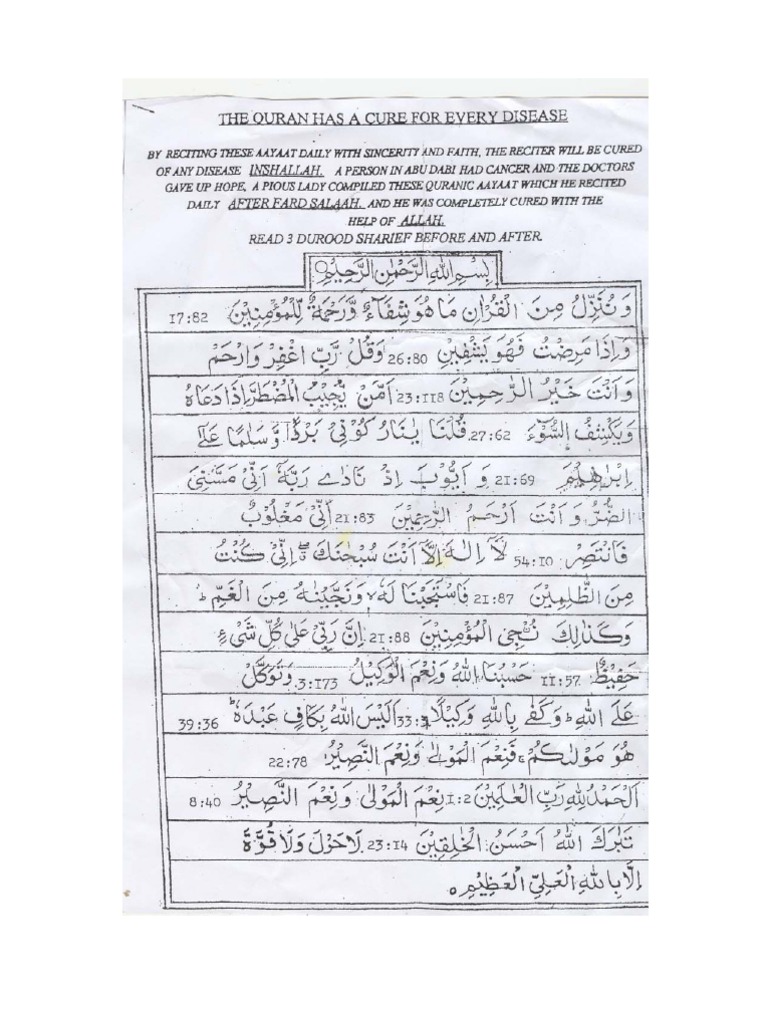 THE QURAN HAS A CURE FOR EVERY DISEASE
BY RECITING THESE AAYAAT DAILY WITH SINCERITY AND FAITH, THE RECITER WILL BE CURED
OF ANY DISEASE INSHALLAH. A PERSON IN ABU DABI HAD CANCER AND THE DOCTORS
GAVE UP HOPE, A PIOUS LADY COMPILED THESE QURANIC AAYAAT WHICH HE RECITED
DAILY AFTER FARD SALAAH. AND HE WAS COMPLETELY CURED WITH THE
HELP OF ALLAH.
READ 3 DUROOD SHARIEF BEFORE AND AFTER.
بِسْمِ اللهِ الرَّحْمٰنِ الرَّحِيْمِ
وَنُنَزِّلُ مِنَ الْقُرْاٰنِ مَا هُوَ شِفَآءٌ وَّرَحْمَةٌ لِّلْمُؤْمِنِيْنَ 17:82
وَاِذَا مَرِضْتُ فَهُوَ يَشْفِيْنِ 26:80 وَقُلْ رَّبِّ اغْفِرْ وَارْحَمْ
وَاَنْتَ خَيْرُ الرّٰحِمِيْنَ 23:118 اَمَّنْ يُّجِيْبُ الْمُضْطَرَّ اِذَا دَعَاهُ
وَيَكْشِفُ السُّوْٓءَ 27:62 قُلْنَا يٰنَارُ كُوْنِيْ بَرْدًا وَّسَلٰمًا عَلٰٓى
اِبْرٰهِيْمَ 21:69 وَاَيُّوْبَ اِذْ نَادٰى رَبَّهٗٓ اَنِّيْ مَسَّنِيَ
الضُّرُّ وَاَنْتَ اَرْحَمُ الرّٰحِمِيْنَ 21:83 اَنِّيْ مَغْلُوْبٌ
فَانْتَصِرْ 54:10 لَآ اِلٰهَ اِلَّآ اَنْتَ سُبْحٰنَكَ اِنِّيْ كُنْتُ
مِنَ الظّٰلِمِيْنَ 21:87 فَاسْتَجَبْنَا لَهٗ وَنَجَّيْنٰهُ مِنَ الْغَمِّ ط
وَكَذٰلِكَ نُنْجِى الْمُؤْمِنِيْنَ 21:88 اِنَّ رَبِّيْ عَلٰى كُلِّ شَيْءٍ
حَفِيْظٌ 11:57 حَسْبُنَا اللهُ وَنِعْمَ الْوَكِيْلُ 3:173 وَتَوَكَّلْ
عَلَى اللهِ ط وَكَفٰى بِاللهِ وَكِيْلًا 33:3 اَلَيْسَ اللهُ بِكَافٍ عَبْدَهٗ ط 39:36
هُوَ مَوْلٰىكُمْ فَنِعْمَ الْمَوْلٰى وَنِعْمَ النَّصِيْرُ 22:78
اَلْحَمْدُ لِلّٰهِ رَبِّ الْعٰلَمِيْنَ 1:2 نِعْمَ الْمَوْلٰى وَنِعْمَ النَّصِيْرُ 8:40
تَبٰرَكَ اللهُ اَحْسَنُ الْخٰلِقِيْنَ 23:14 لَا حَوْلَ وَلَا قُوَّةَ
اِلَّا بِاللهِ الْعَلِيِّ الْعَظِيْمِ ۝